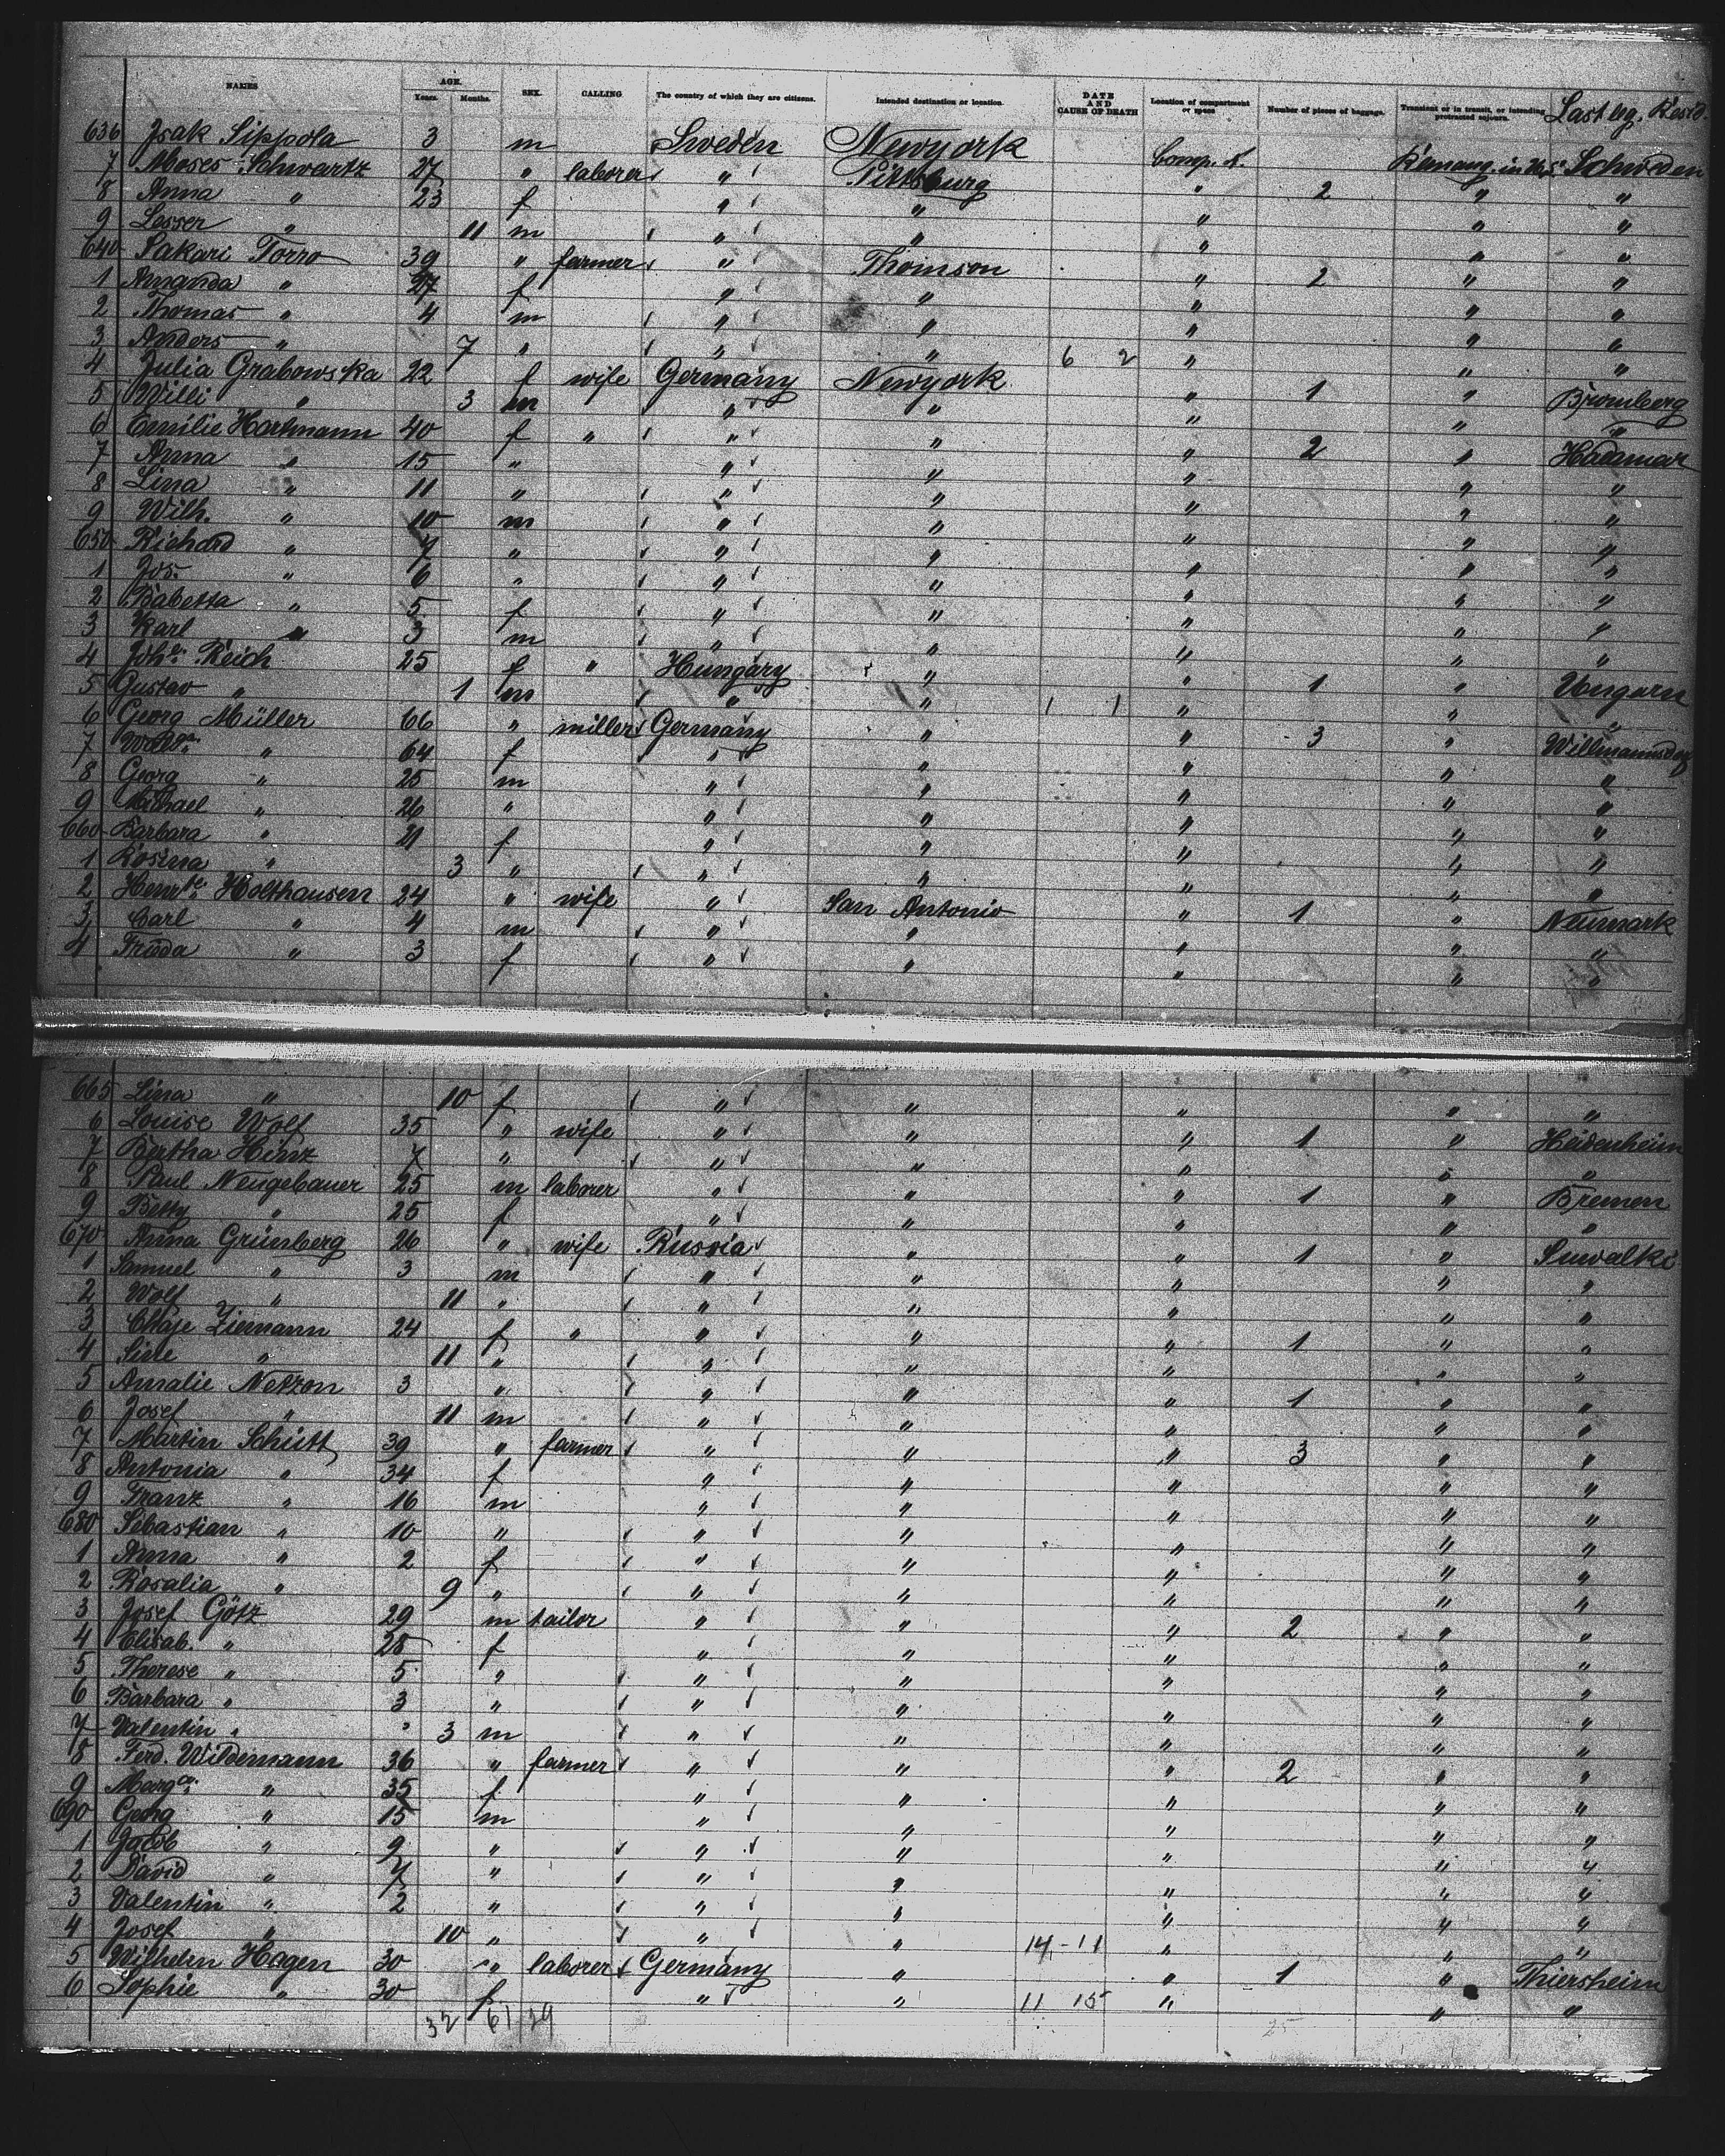 NAMES AGE. Years. Months. SEX. CALLING The country of which they are citizens. Intended destination or location. DATE AND CAUSE OF DEATH Location of compartment or space Number of pieces of baggage. Transient or in transit, or intending protracted sojourn. Last leg. Resid.
636 Isak Sippola 3 m Sweden Newyork Comp. Schweden
7 Moses Schwartz 27 " laborer " Pittsburg " 2 " "
8 Anna " 23 f " " " " "
9 Lesser " 11 m " " " " "
640 Sakari Torro 39 " farmer " Thomson " 2 " "
1 Amanda " 27 f " " " " "
2 Thomas " 4 m " " " " "
3 Anders " 7 " " " 6 2 " " "
4 Julia Grabowska 22 f wife Germany Newyork " 1 " Bromberg
5 Willi " 3 m " " " " "
6 Emilie Hartmann 40 f " " " " 2 " Hadamar
7 Anna " 15 " " " " " "
8 Lina " 11 " " " " " "
9 Wilh. " 10 m " " " " "
650 Richard " 7 " " " " " "
1 Jos. " 6 " " " " " "
2 Babetta " 5 f " " " " "
3 Karl " 3 m " " " " "
4 Johe. Reich 25 f " Hungary " " 1 " Ungarn
5 Gustav " 1 m " " 1 1 " " "
6 Georg Müller 66 " miller Germany " " 3 "
7 " 64 f " " " " "
8 Georg " 25 m " " " " "
9 Michael " 26 " " " " " "
660 Barbara " 21 f " " " " "
1 Rosina " 3 " " " " " "
2 Henrte. Holthausen 24 " wife " San Antonio " 1 " Neumark
3 Carl " 4 m " " " " "
4 Frieda " 3 f " " " " "
665 Lina " 10 f " " " " "
6 Louise Wolf 35 " wife " " " 1 " Heidenheim
7 Bertha Hinz 7 " " " " " "
8 Paul Neugebauer 25 m laborer " " " 1 " Bremen
9 Betty " 25 f " " " " "
670 Anna Grünberg 26 " wife Russia " " 1 " Suwalki
1 Samuel " 3 m " " " " "
2 Wolf " 11 " " " " " "
3 Chaje Ziemann 24 f " " " " 1 " "
4 " 11 " " " " " "
5 Amalie Netzon 3 " " " " 1 " "
6 Josef " 11 m " " " " "
7 Martin Schütt 39 " farmer " " " 3 " "
8 Antonia " 34 f " " " " "
9 Franz " 16 m " " " " "
680 Sebastian " 10 " " " " " "
1 Anna " 2 f " " " " "
2 Rosalia " 9 " " " " " "
3 Josef Götz 29 m tailor " " " 2 " "
4 Elisab. " 28 f " " " " "
5 Therese " 5 " " " " " "
6 Barbara " 3 " " " " " "
7 Valentin " 3 m " " " " "
8 Ferd. Wildemann 36 " farmer " " " 2 " "
9 Marga. " 35 f " " " " "
690 Georg " 15 m " " " " "
1 Jacob " 9 " " " " " "
2 David " 7 " " " " " "
3 Valentin " 2 " " " " " "
4 Josef " 10 " " " 14 - 11 " " "
5 Wilhelm Hagen 30 " laborer Germany " " 1 " Thiersheim
6 Sophie " 30 f " " 11 15 " " "
32 61 29 25